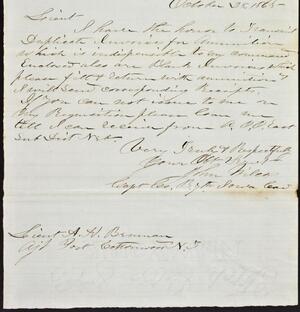 October 25 1865
Lieut
I have the honor to Transmit
Duplicate Invoices for ammunition
which is indispensible to my command
Enclosed also are Blank Invoices which
please fill & return with ammunition &
I will send corresponding Receipts.
If you can not issue to me on
my Requisition please loan me
till I can receive from
Sub Dist Neb.
Very Truly & Respectfully
Your Obt
John
Capt Co. 7th Iowa Cav
Lieut A. H. Bowman
Adjt Post Cottonwood N.T